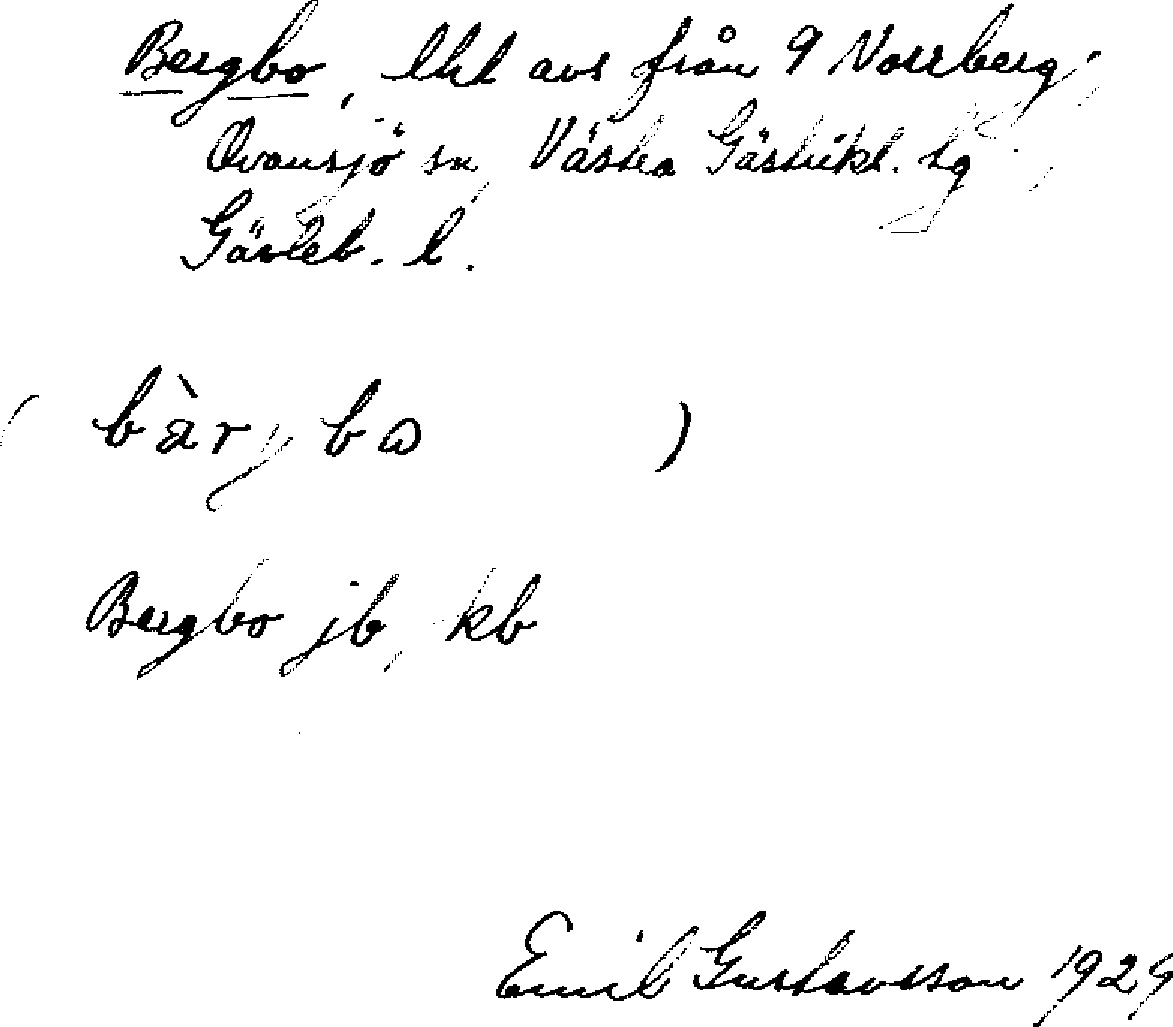 Bergbo, lht avs från 9 Norrberg,
Ovansjö sn, Västra Gästrikl. tg,
Gävleb. l.
( bàr, bɷ )
Bergbo jb, kb
Emil Gustavsson 1929